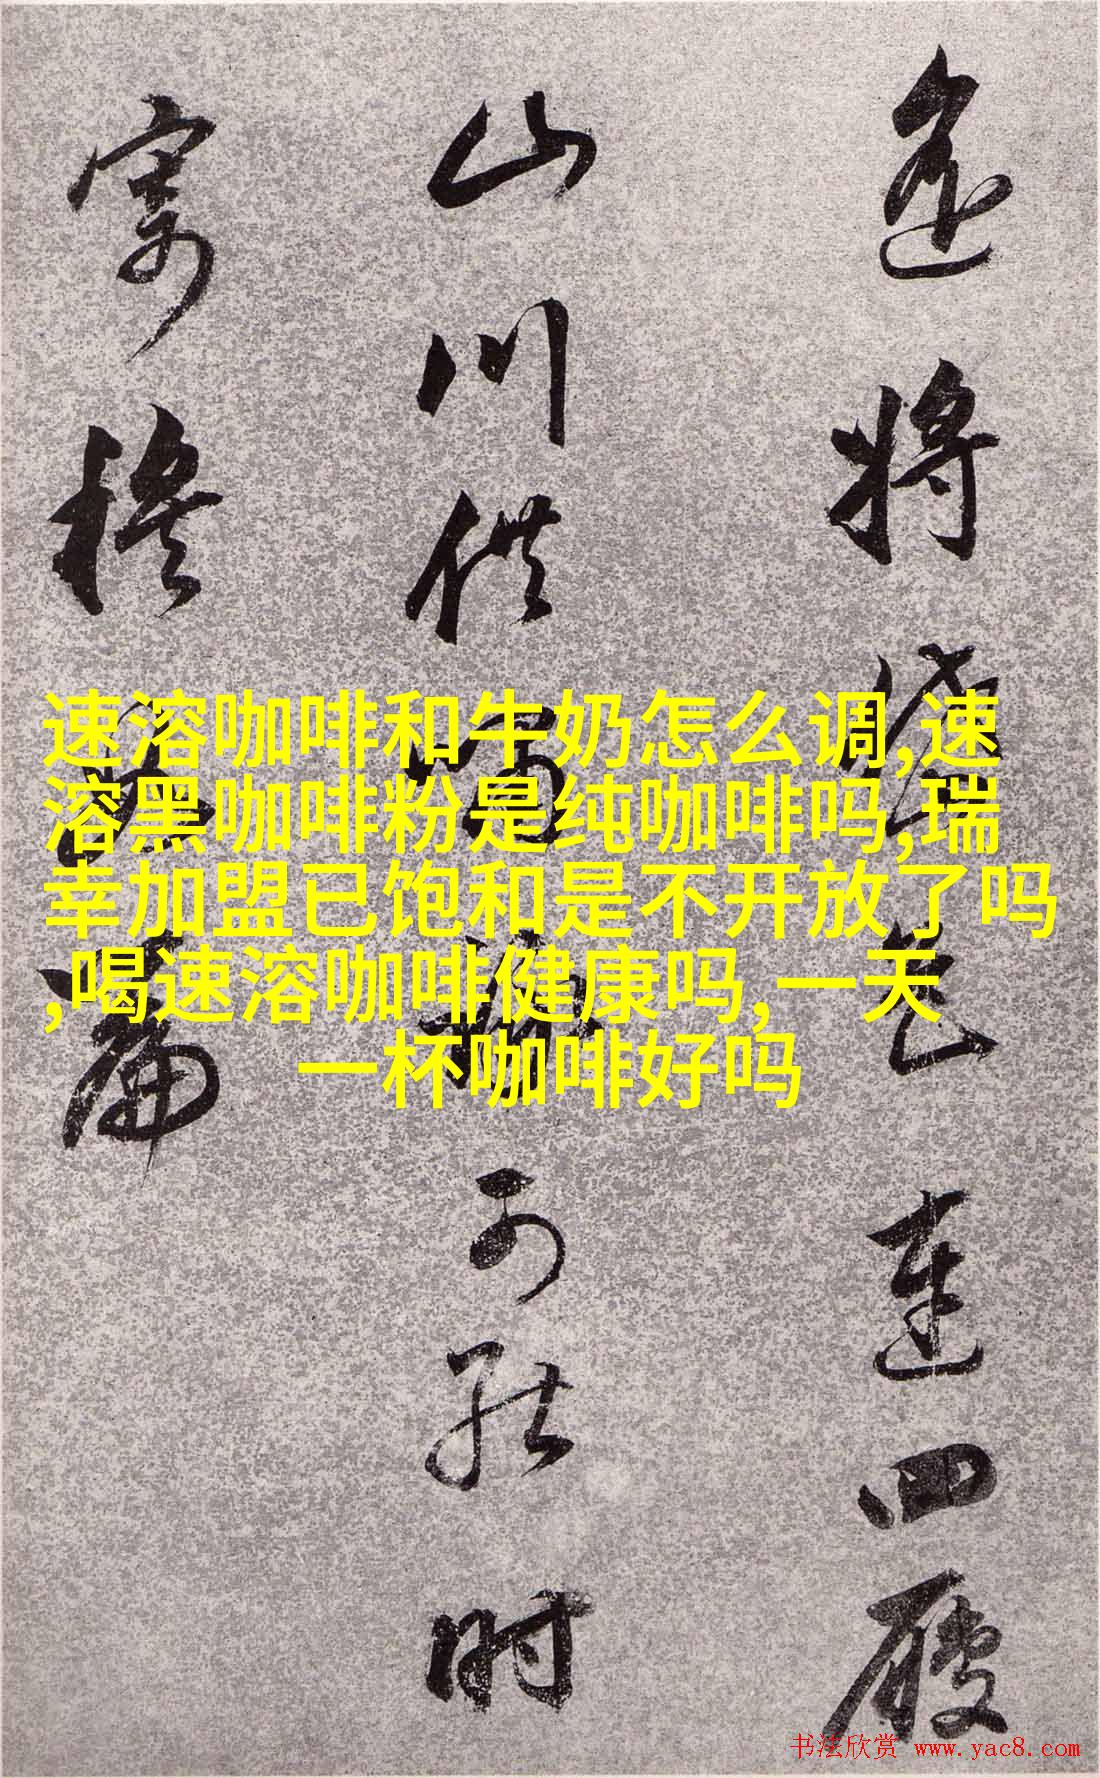 速溶咖啡和牛奶怎么调,速
溶黑咖啡粉是纯咖啡吗,瑞
幸加盟已饱和是不开放了吗
,喝速溶咖啡健康吗,一天
一杯咖啡好吗
遥将
连四
山川供
可能时
寄
篇
书法欣赏 www.yac8.com